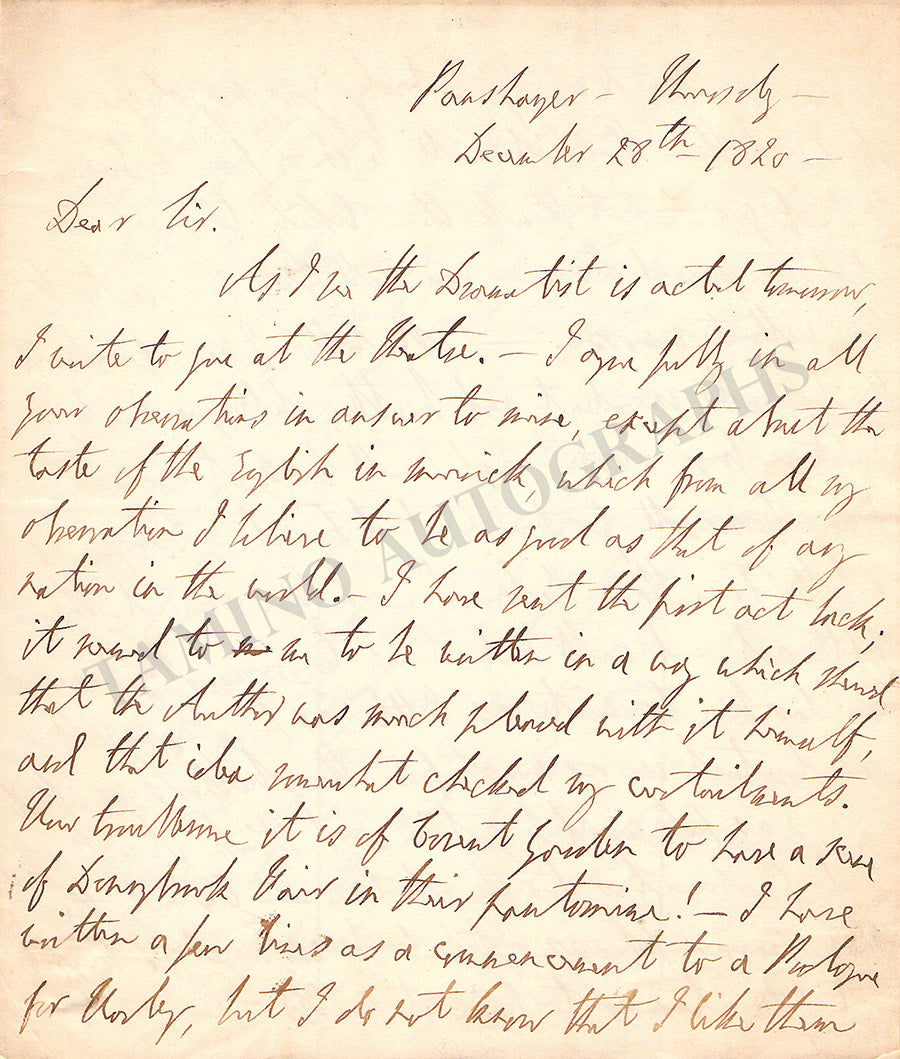 Panshanger – Thursday –
December 28th 1820 –
Dear Sir.
As I see the Dramatist is acted tomorrow,
I write to you at the Theatre. – I agree fully in all
your observations in answer to mine, except about the
taste of the English in musick, which from all my
observation I believe to be as good as that of any
nation in the world. – I have sent the first act back;
it seemed to me to be written in a way which shewed
that the Author was much pleased with it himself,
and that idea somewhat checked my curtailments.
How troublesome it is of Covent Garden to have a scene
of Donnybrook Fair in their pantomime! – I have
written a few lines as a commencement to a Prologue
for , but I do not know that I like them
TAMINO AUTOGRAPHS